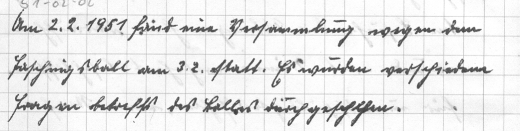 51-02-02
Am 2.2.1951 fand eine Versammlung wegen dem
Faschingsball am 3.2. statt. Es wurden verschiedene
Fragen betreffs des Balles durchgesprochen.